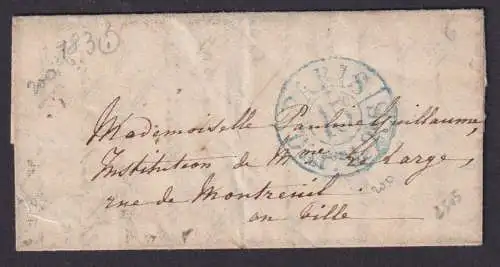 1836
200
6
PARIS
Mademoiselle Pauline Guillaume,
Institution de Mme Le Large,
rue de Montreuil
en Ville
200
2505